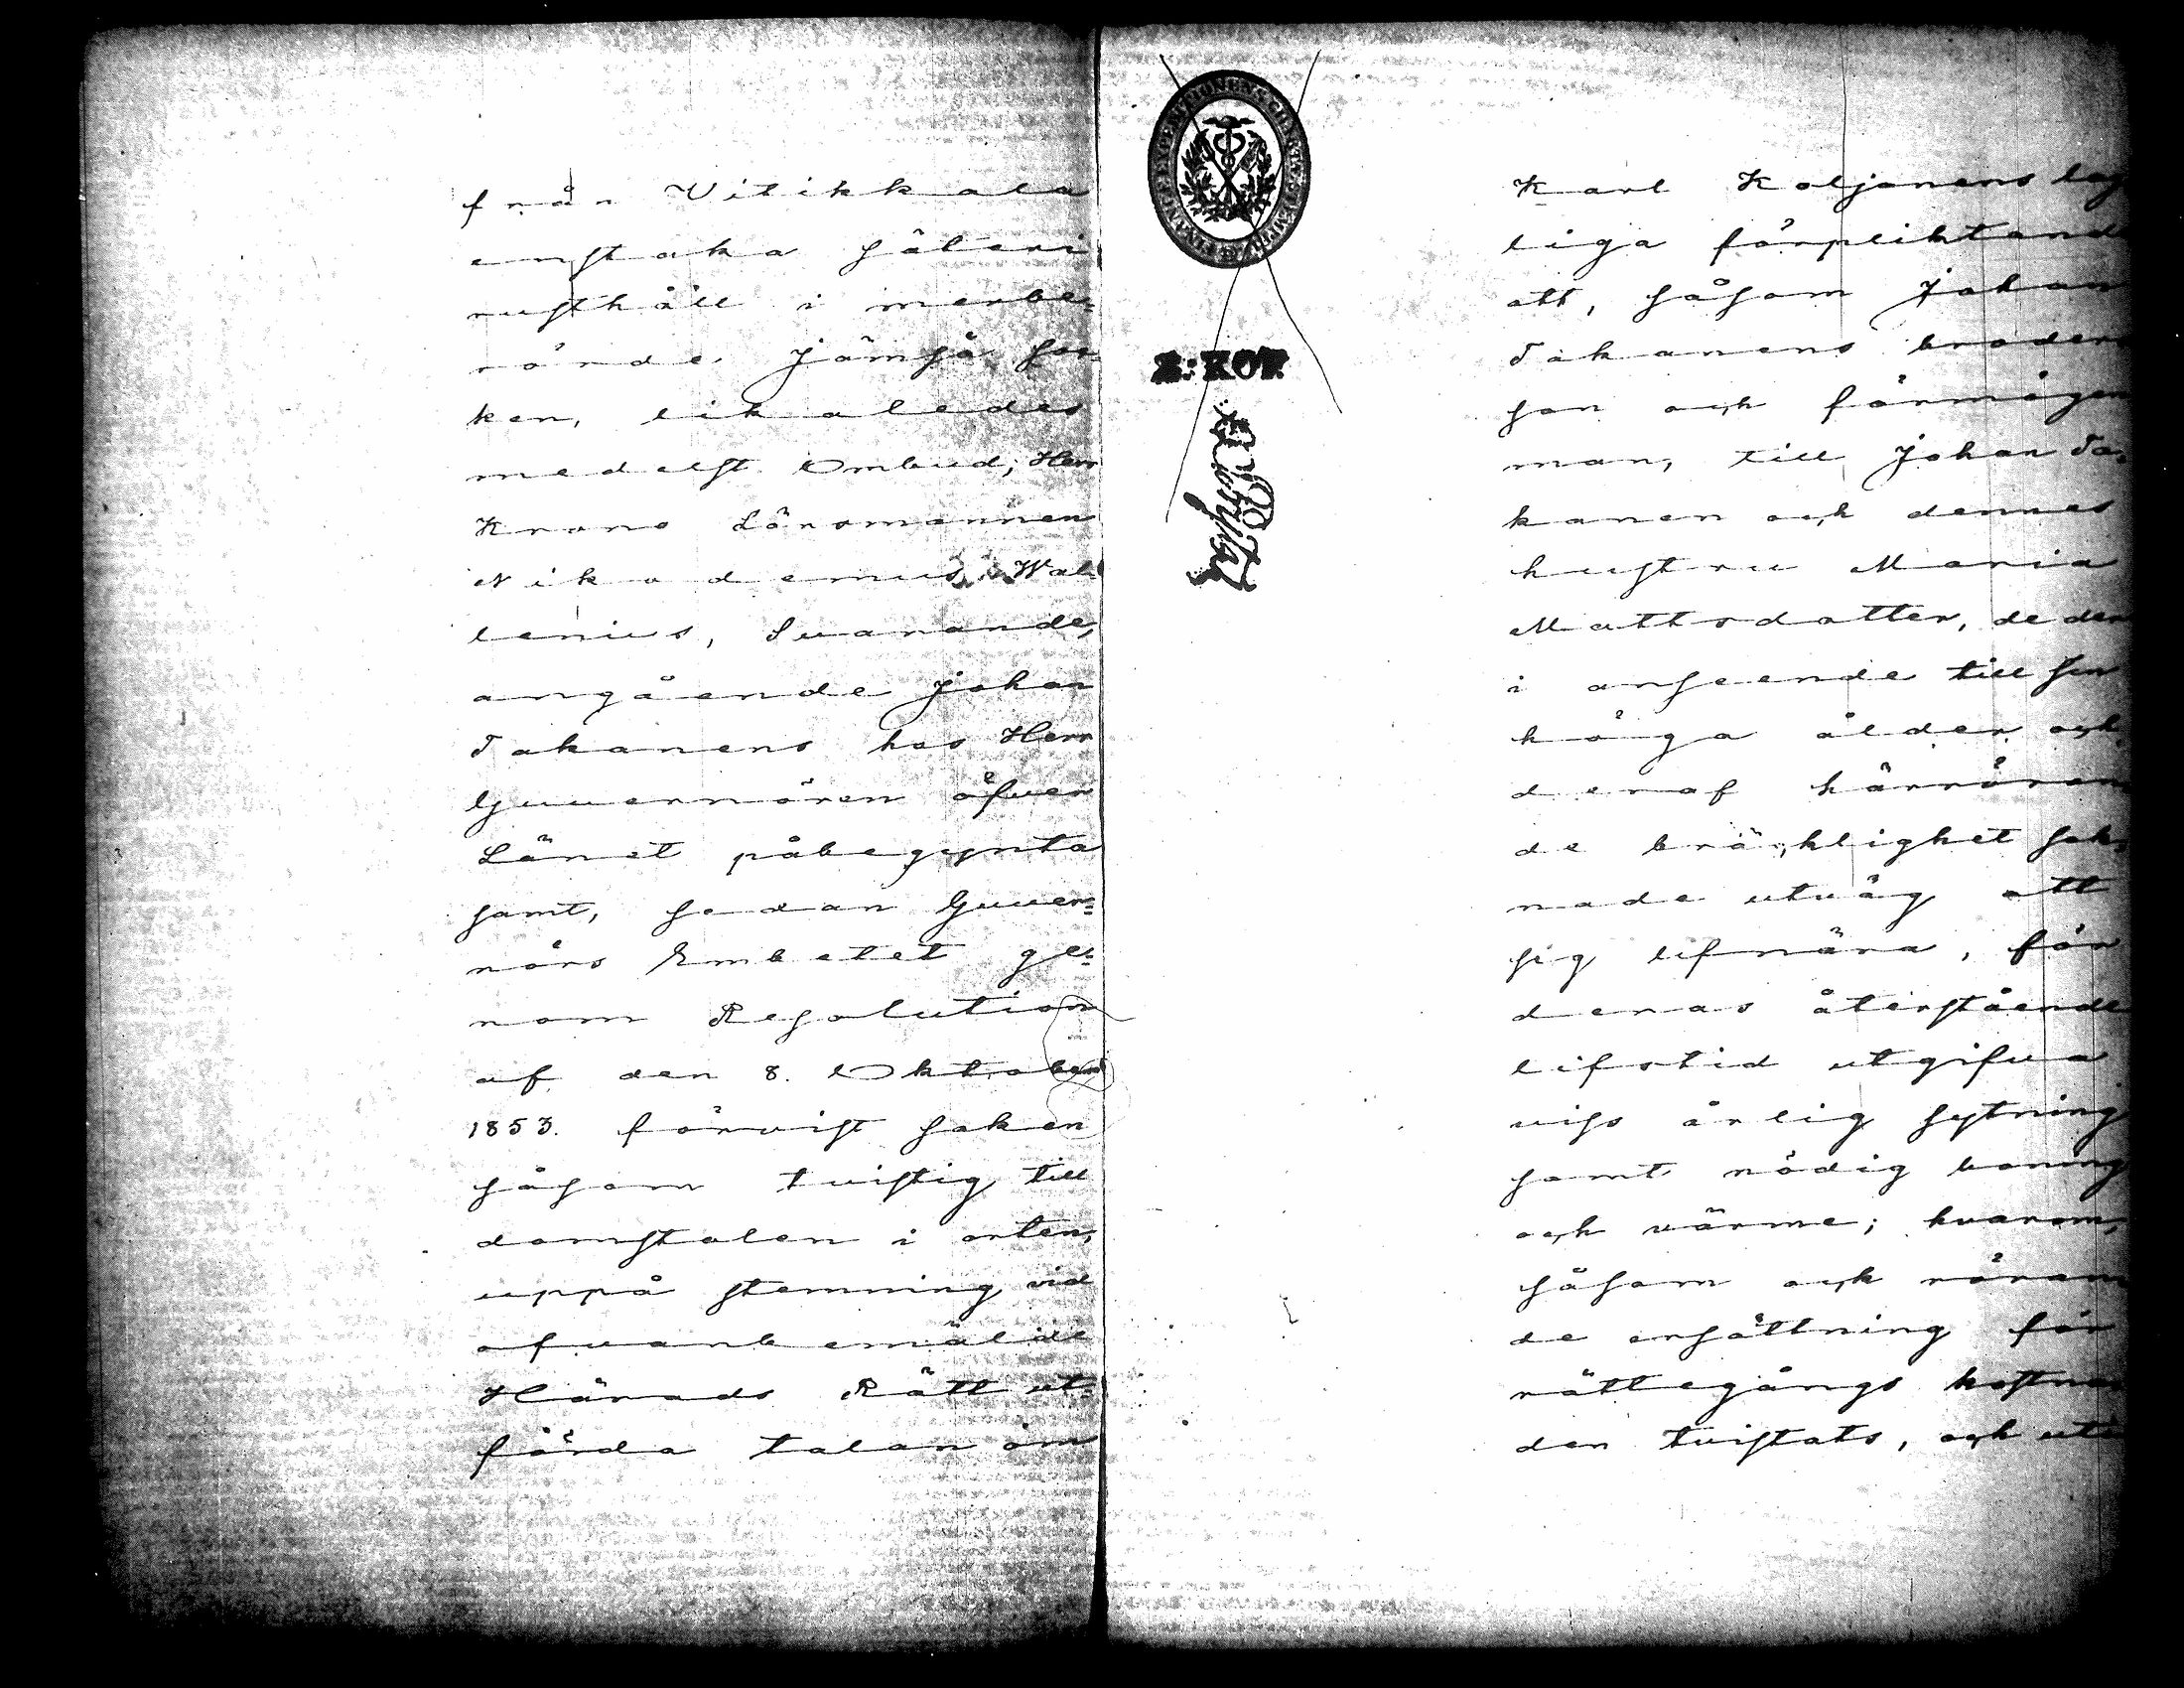 från Vitikkala
enstaka säteri
rusthåll i merbe=
rörde Jämsä soc=
ken, likaledes
medelst Ombud, Herr
Krono Länsmannen
Nikodemus Wal=
lenius, Svarande,
angående Johan
Takanens hos Herr
Guvernören öfver
Länet påbegynta
samt, sedan Guver=
nörs Embetet ge=
nom Resolution
af den 8. Oktober
1853. förvist saken
såsom tvistig till
domstolen i orten,
uppå stemning vid
ofvanbemälde
Härads Rätt ut=
förda talan om
2: KOP.
Karl Koljonens lag
liga förpliktande
att, såsom Johan
Takanens broders
son och förmögen
man, till Johan Ta=
kanen och dennes
hustru Maria
Mattsdotter, de der
i anseende till sin
höga ålder och
deraf härröran
de bräcklighet sak=
nade utväg att
sig lifnära, för
deras återstående
lifstid utgifva
viss årlig sytning
samt nödig boning
och värme; hvarom,
såsom ock röran
de ersättning för
rättegångs kostna
den tvistats, och uti